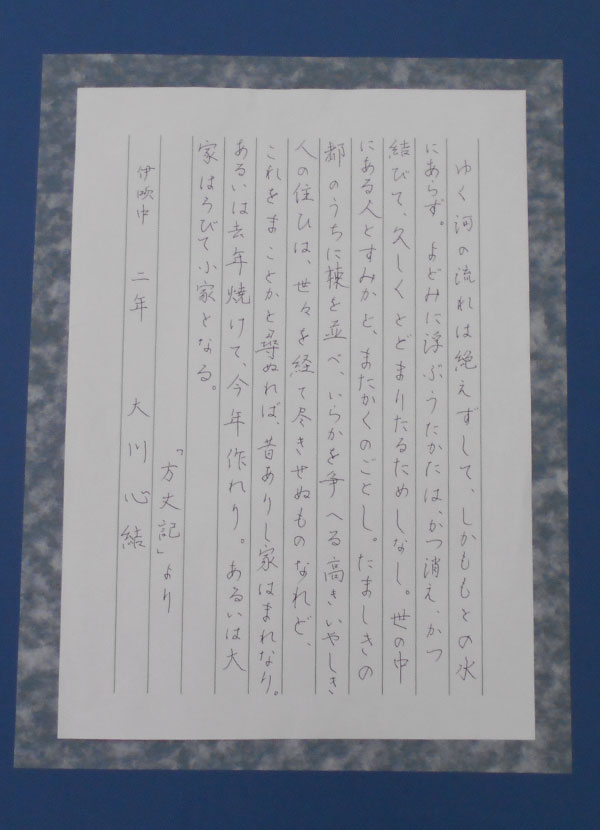 ゆく河の流れは絶えずして、しかももとの水
にあらず。よどみに浮ぶうたかたは、かつ消え、かつ
結びて、久しくとどまりたるためしなし。世の中
にある人とすみかと、またかくのごとし。たましきの
都のうちに棟を並べ、いらかを争へる高きいやしき
人の住ひは、世々を経て尽きせぬものなれど、
これをまことかと尋ぬれば、昔ありし家はまれなり。
あるいは去年焼けて、今年作れり。あるいは大
家ほろびて小家となる。
「方丈記」より
伊吹中 二年 大川心結